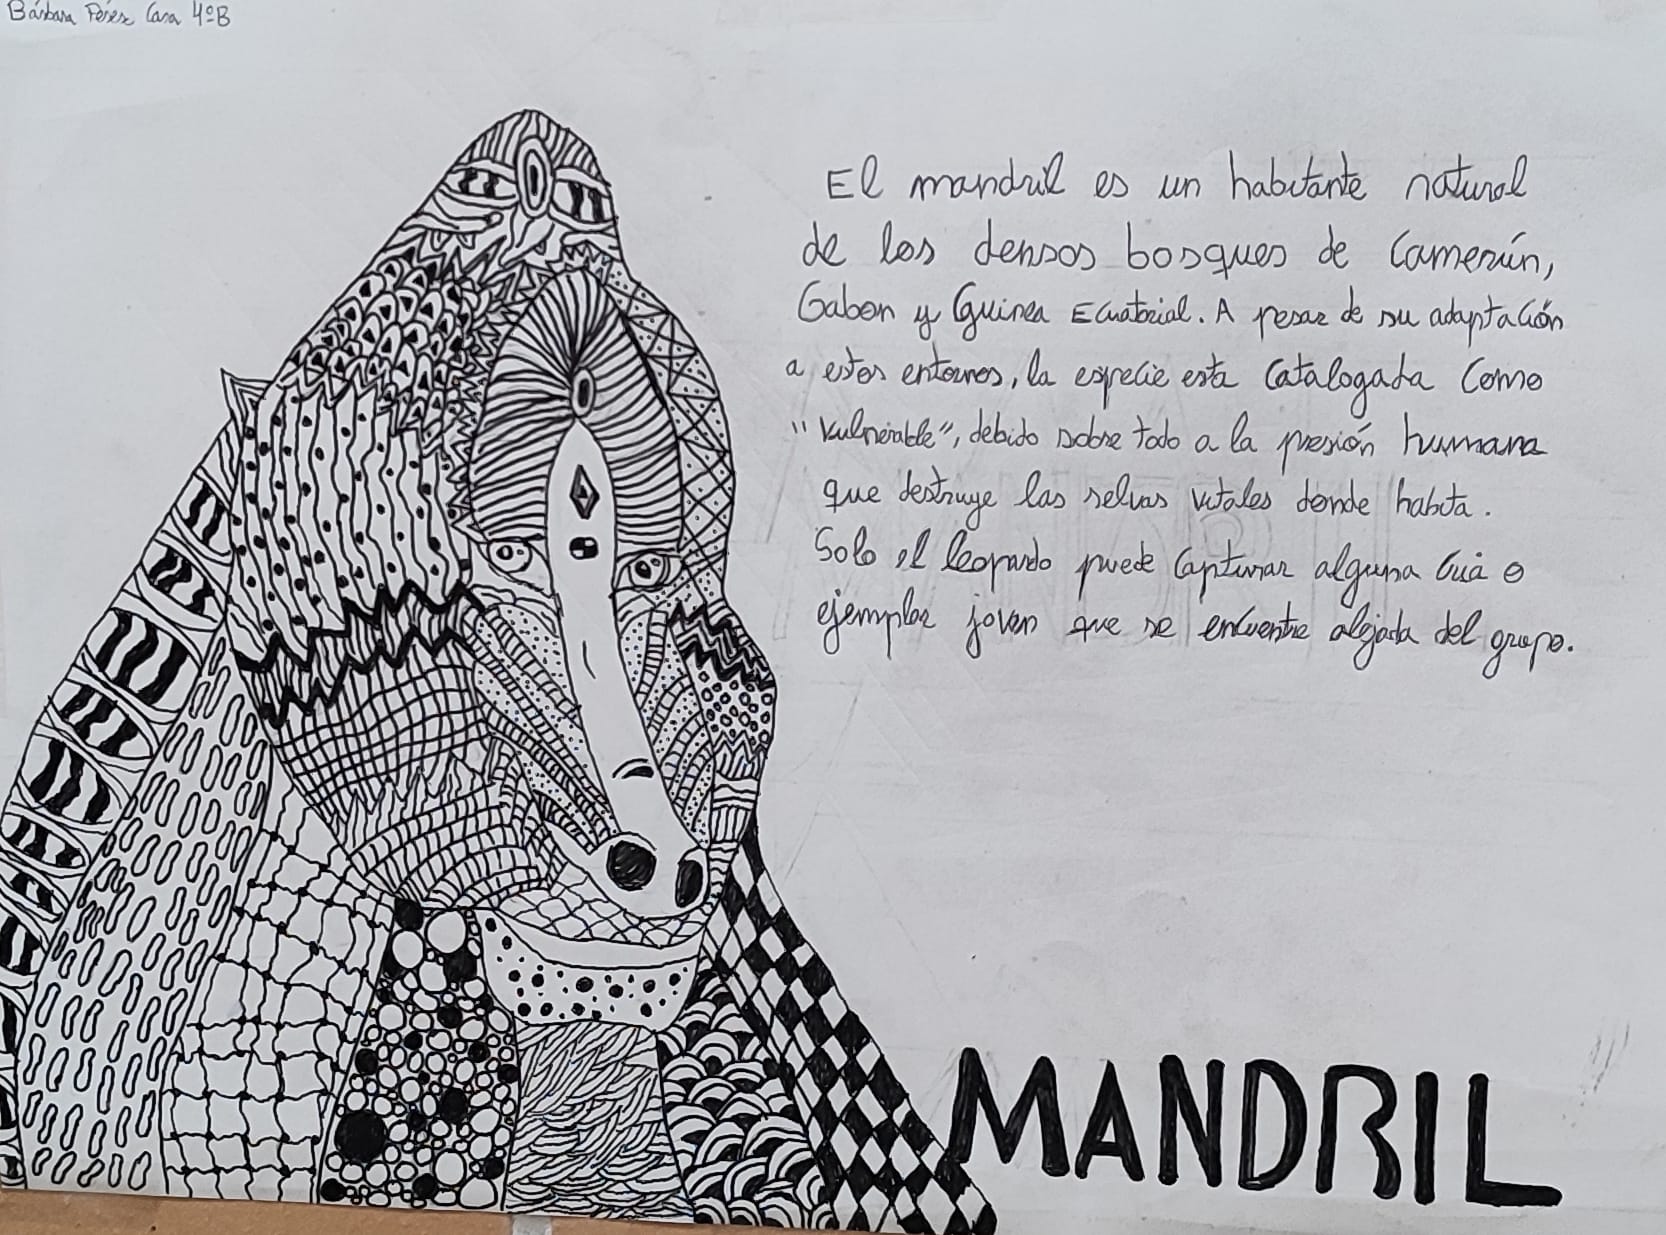 Bárbara Pérez Casa 4ºB
El mandril es un habitante natural
de los densos bosques de Camerún,
Gabon y Guinea Ecuatorial. A pesar de su adaptación
a estos entornos, la especie esta catalogada como
"vulnerable", debido sobre todo a la presión humana
que destruye las selvas vitales donde habita.
Solo el leopardo puede capturar alguna cria o
ejemplar joven que se encuentre alejada del grupo.
MANDRIL